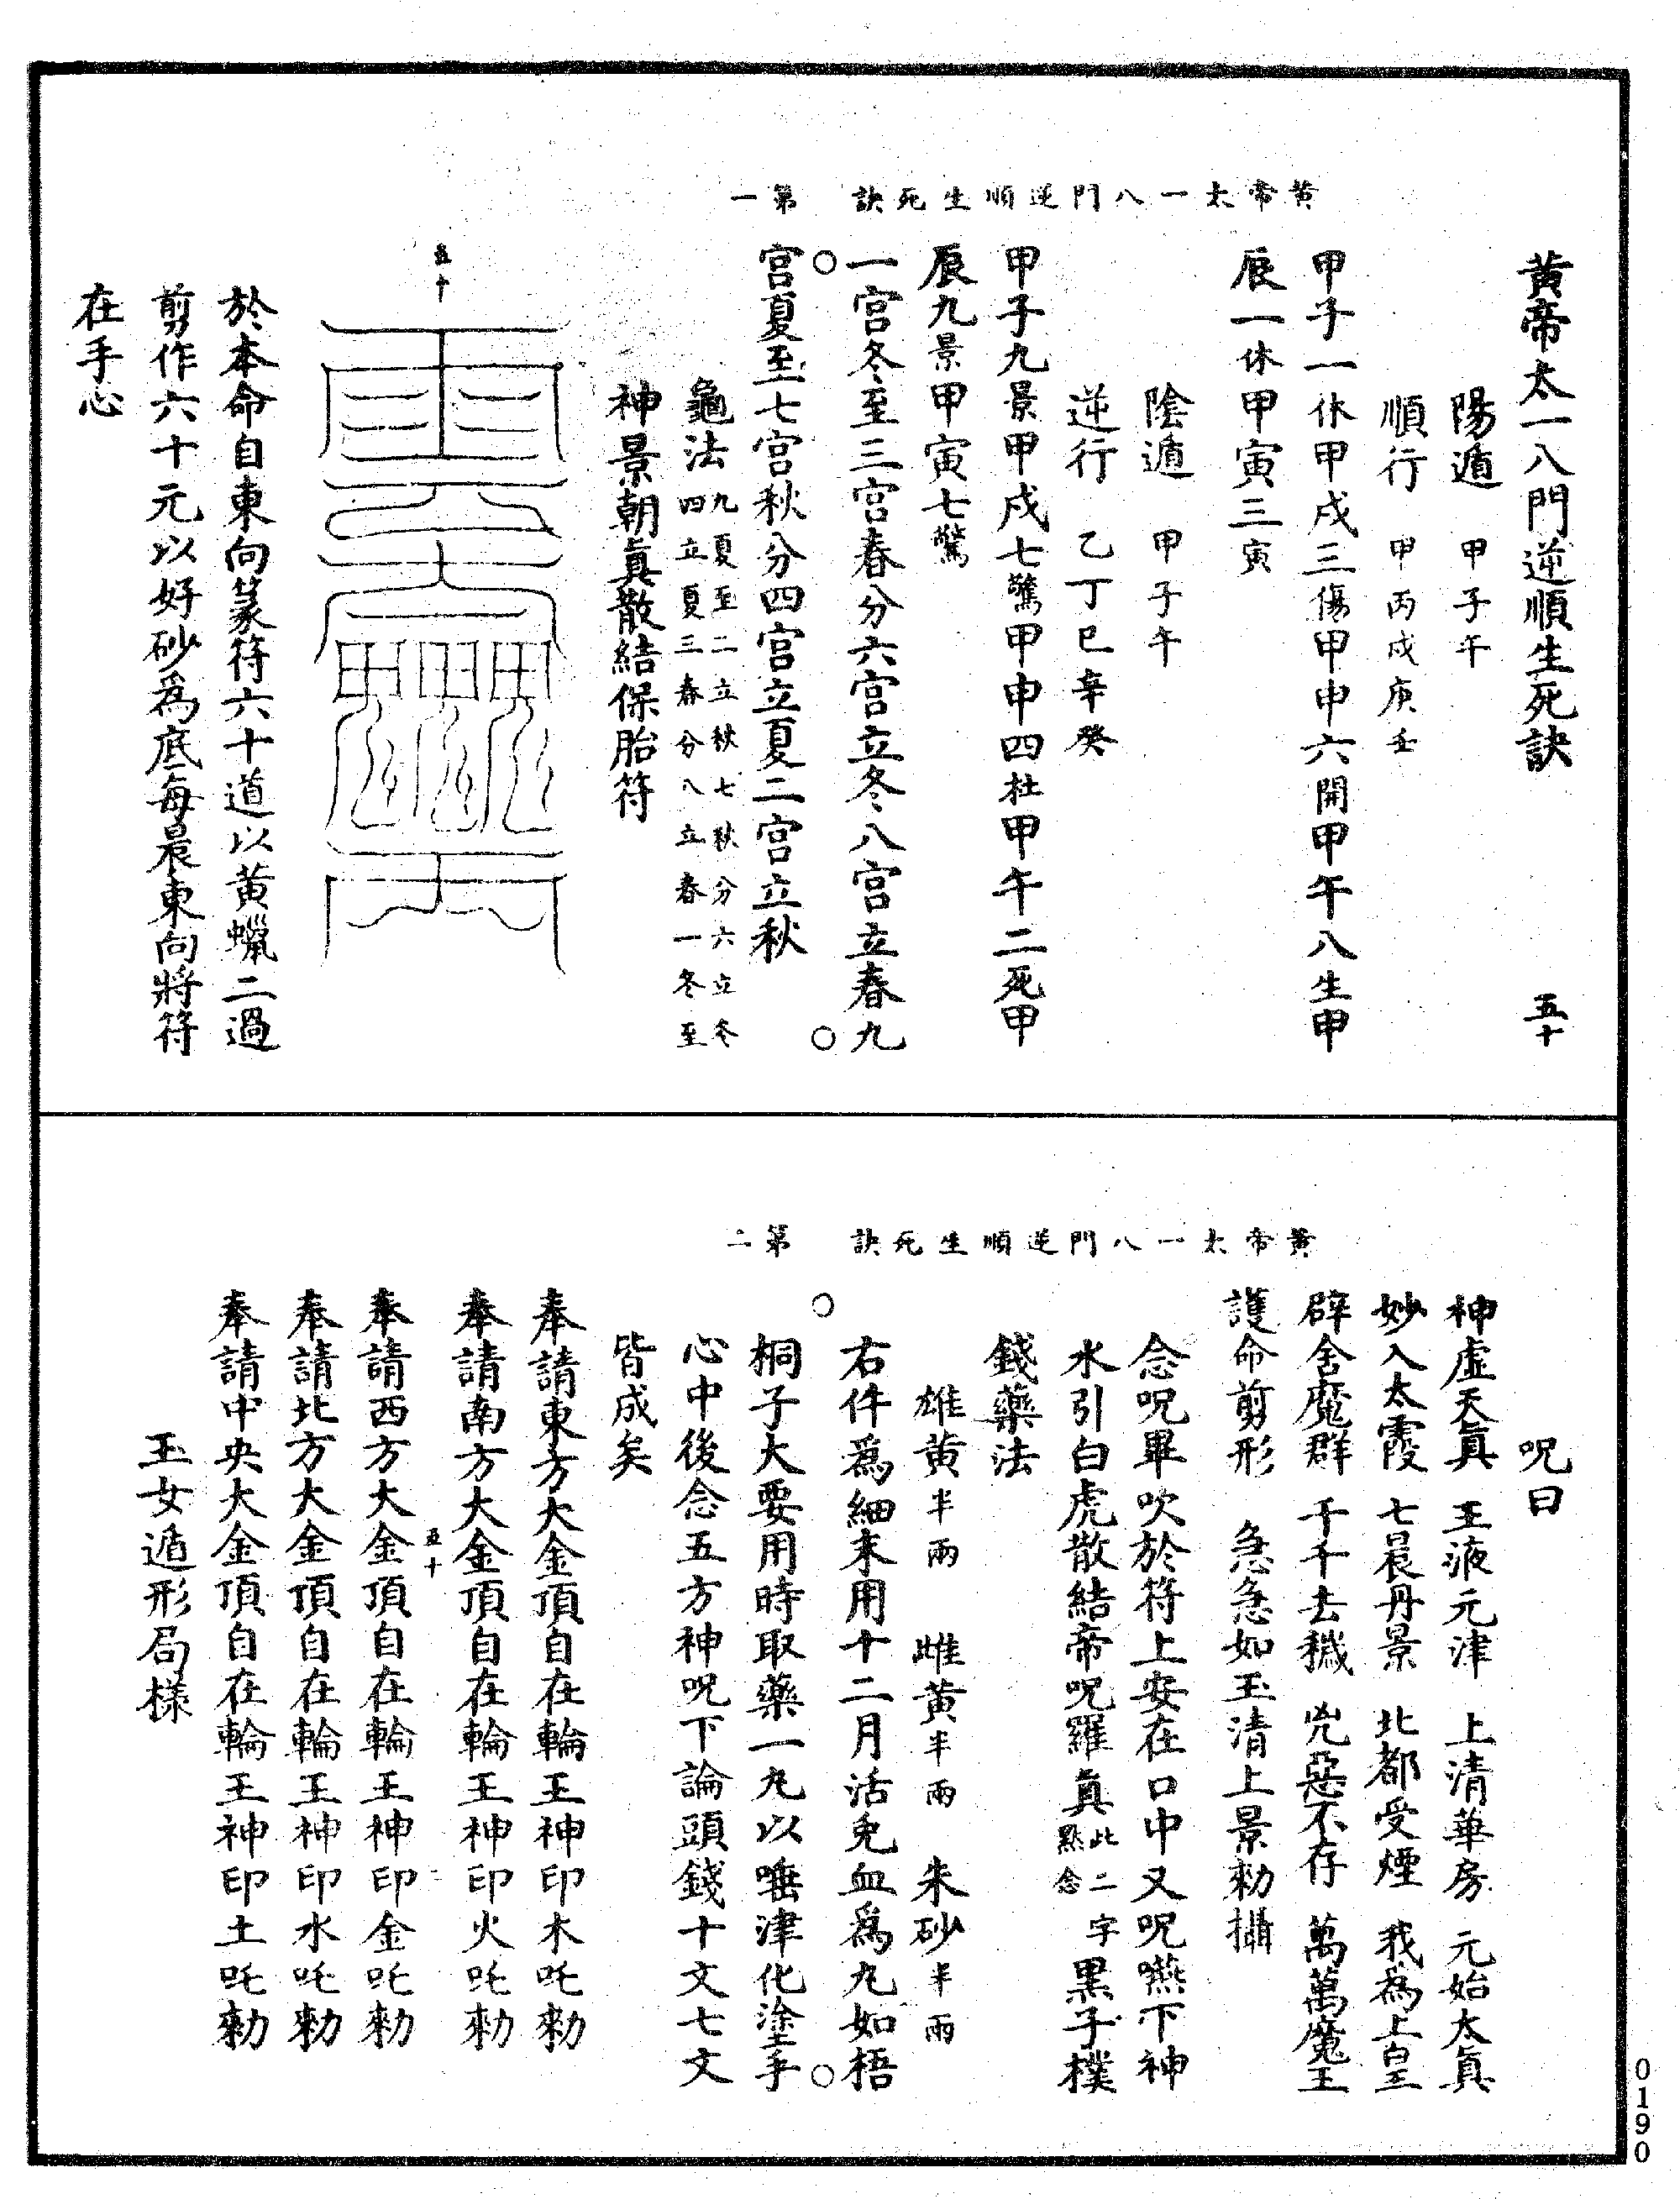 黃帝太一八門逆順生死訣　第一
黃帝太一八門逆順生死訣　五十
陽遁　甲子午
順行　甲丙戊庚壬
甲子一休甲戌三傷甲申六開甲午八生甲
辰一休甲寅三寅
陰遁　甲子午
逆行　乙丁巳辛癸
甲子九景甲戌七驚甲申四杜甲午二死甲
辰九景甲寅七驚
一宮冬至三宮春分六宮立冬八宮立春九
宮夏至七宮秋分四宮立夏二宮立秋
龜法　九夏至二立秋七秋分六立冬
四立夏三春分八立春一冬至
神景朝眞散結保胎符
五十
於本命自東向篆符六十道以黃蠟二過
剪作六十元以好砂爲底每晨東向將符
在手心
黃帝太一八門逆順生死訣　第二
呪曰
神虛天眞　玉液元津　上清華房　元始太眞
妙入太霞　七晨丹景　北都受煙　我爲上皇
辟舍魔群　千千去穢　兇惡不存　萬萬魔王
護命剪形　急急如玉清上景勑攝
念呪畢吹於符上安在口中又呪嚥下神
水引白虎散結帝呪羅眞此二字
㸃念
黑子樸
錢藥法
雄黃半兩　雌黃半兩　朱砂半兩
右件爲細末用十二月活兔血爲丸如梧
桐子大要用時取藥一丸以唾津化塗手
心中後念五方神呪下論頭錢十文七文
皆成矣
奉請東方大金頂自在輪王神印木吒勑
奉請南方大金頂自在輪王神印火吒勑
五十　二
奉請西方大金頂自在輪王神印金吒勑
奉請北方大金頂自在輪王神印水吒勑
奉請中央大金頂自在輪王神印土吒勑
玉女遁形局樣
0190